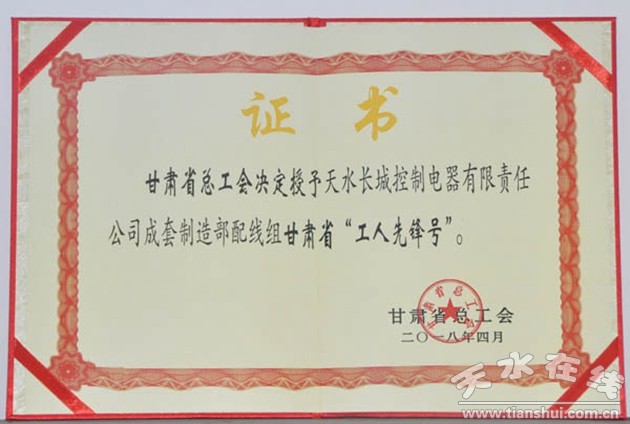 证书
甘肃省总工会决定授予天水长城控制电器有限责任
公司成套制造部配线组甘肃省“工人先锋号”。
甘肃省总工会
甘肃省总工会
二〇一八年四月
天水在线
www.tianshui.com.cn